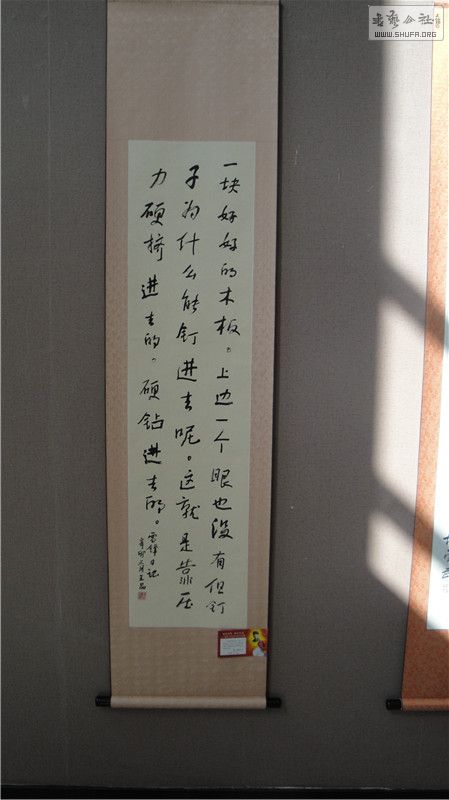 一块好好的木板。上边一个眼也没有但钉
子为什么能钉进去呢。这就是靠压
力硬挤进去的。硬钻进去的。
雷锋日记
书艺公社
WWW.SHUFA.ORG